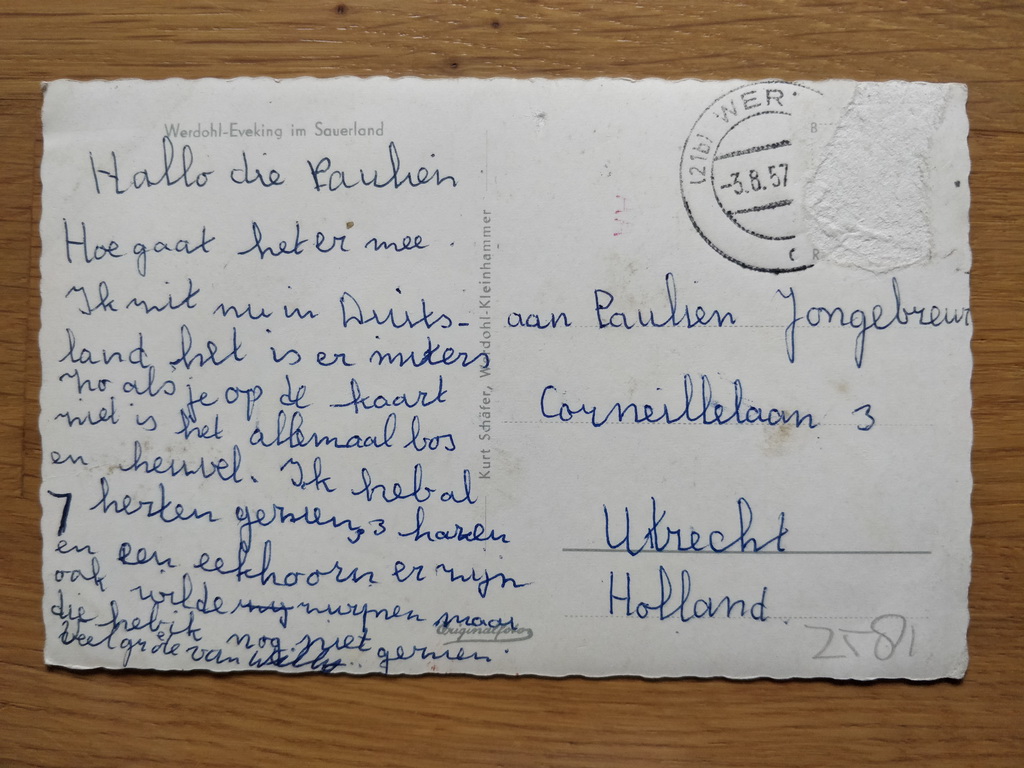 Werdohl-Eveking im Sauerland
Hallo die Paulien
Hoe gaat het er mee.
Ik zit nu in Duits-
land, het is er mieters
zo als je op de kaart
ziet is het allemaal bos
en heuvel. Ik heb al
7 herten gezien, 3 hazen
en een eekhoorn er zijn
ook wilde zwijnen maar
die heb ik nog niet gezien.
Veel groete van Willy
Kurt Schäfer, Werdohl-Kleinhammer
Originalfoto
(21b) WER
-3.8.57
c
B
R
aan Paulien Jongebreur
Corneillelaan 3
Utrecht
Holland
2581